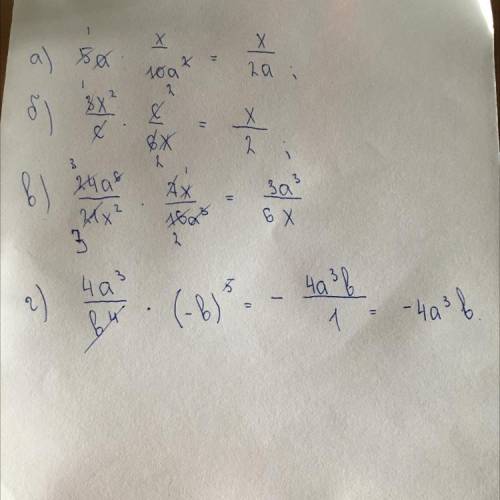 а) 5a · x/10a² = x/2a ;
б) 3x²/c · c/6x = x/2 ;
в) 24a⁸/21x² · 7x/16a⁵ = 3a³/6x
г) 4a³/b⁴ · (-b)⁵ = - 4a³b/1 = -4a³b.